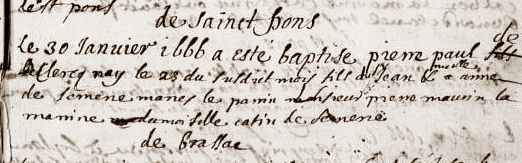 de Sainct pons
le 30 Janvier 1666 a esté baptisé pierre paul de
Leclercq nay le 23 du susdict mois fils de Jean & anne
de semene mariés le parrin monsieur pierre maurin la
marrine madamoiselle catin de semene
de brassac